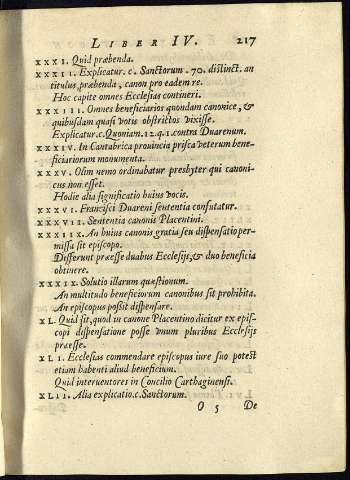 LIBER IV. 217
XXXI. Quid præbenda.
XXXII. Explicatur. c. Sanctorum. 70. distinct. an
titulus, præbenda, canon pro eadem re.
Hoc capite omnes Ecclesias contineri.
XXXIII. Omnes beneficiarios quondam canonice, &
quibusdam quasi votis obstrictos vixisse.
Explicatur.c.Quoniam.12.q.1.contra Duarenum.
XXXIV. In Cantabrica prouincia prisca veterum bene-
ficiariorum monumenta.
XXXV. Olim nemo ordinabatur presbyter qui canoni-
cus non esset.
Hodie alia significatio huius vocis.
XXXVI. Francisci Duareni sententia confutatur.
XXXVII. Sententia canonis Placentini.
XXXIIX. An huius canonis gratia seu dispensatio per-
missa sit episcopo.
Differunt præesse duabus Ecclesijs,& duo beneficia
obtinere.
XXXIX. Solutio illarum quæstionum.
An multitudo beneficiorum canonibus sit prohibita.
An episcopus possit dispensare.
XL. Quid sit, quod in canone Placentino dicitur ex epis-
copi dispensatione posse vnum pluribus Ecclesijs
præesse.
XLI. Ecclesias commendare episcopus iure suo potest
etiam habenti aliud beneficium.
Quid interuentores in Concilio Carthaginensi.
XLII. Alia explicatio.c.Sanctorum.
O 5 De